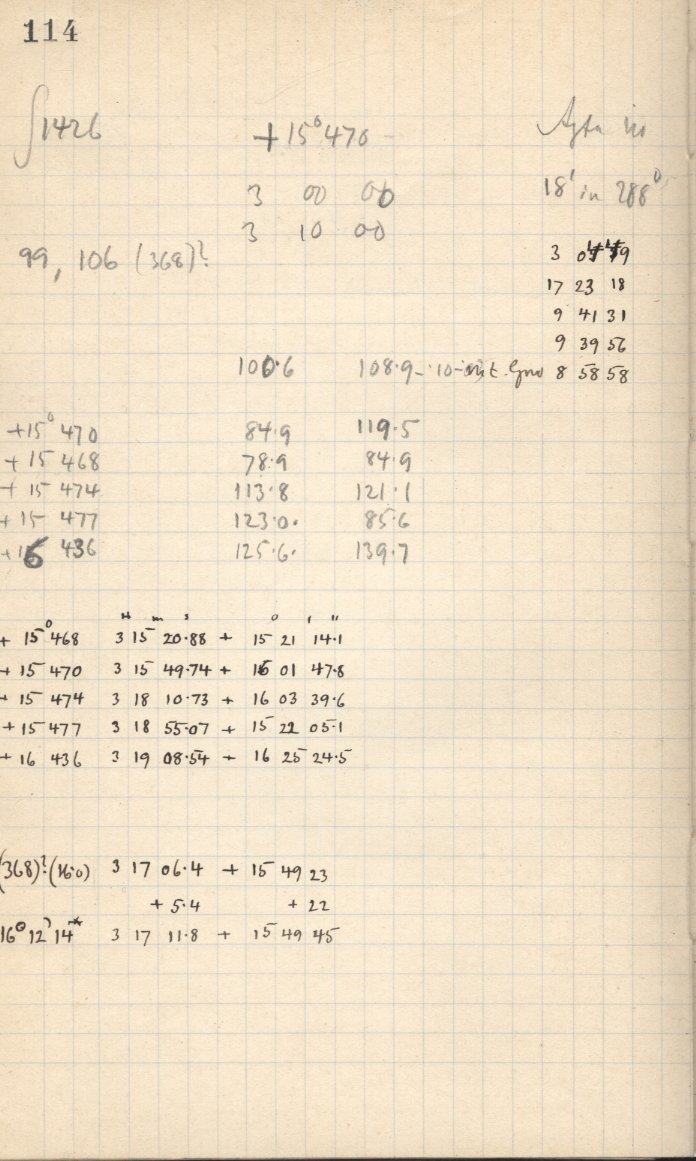 114
∫1426 +15° 470 –
3 00 00 18' in 288°
3 10 00
99, 106 (368)? 3 0
17 23 18
9 41 31
9 39 56
100.6 108.9 – 8 58 58
+15° 470 84.9 119.5
+ 15 468 78.9 84.9
+ 15 474 113.8 121.1
+ 15 477 123.0. 85.6
+ 16 436 125.6. 139.7
H m s ° ' "
+ 15° 468 3 15 20.88 + 15 21 14.1
+ 15 470 3 15 49.74 + 16 01 47.8
+ 15 474 3 18 10.73 + 16 03 39.6
+ 15 477 3 18 55.07 + 15 22 05.1
+ 16 436 3 19 08.54 + 16 25 24.5
(368)? (16.0) 3 17 06.4 + 15 49 23
+ 5.4 + 22
16° 12' 14" 3 17 11.8 + 15 49 45